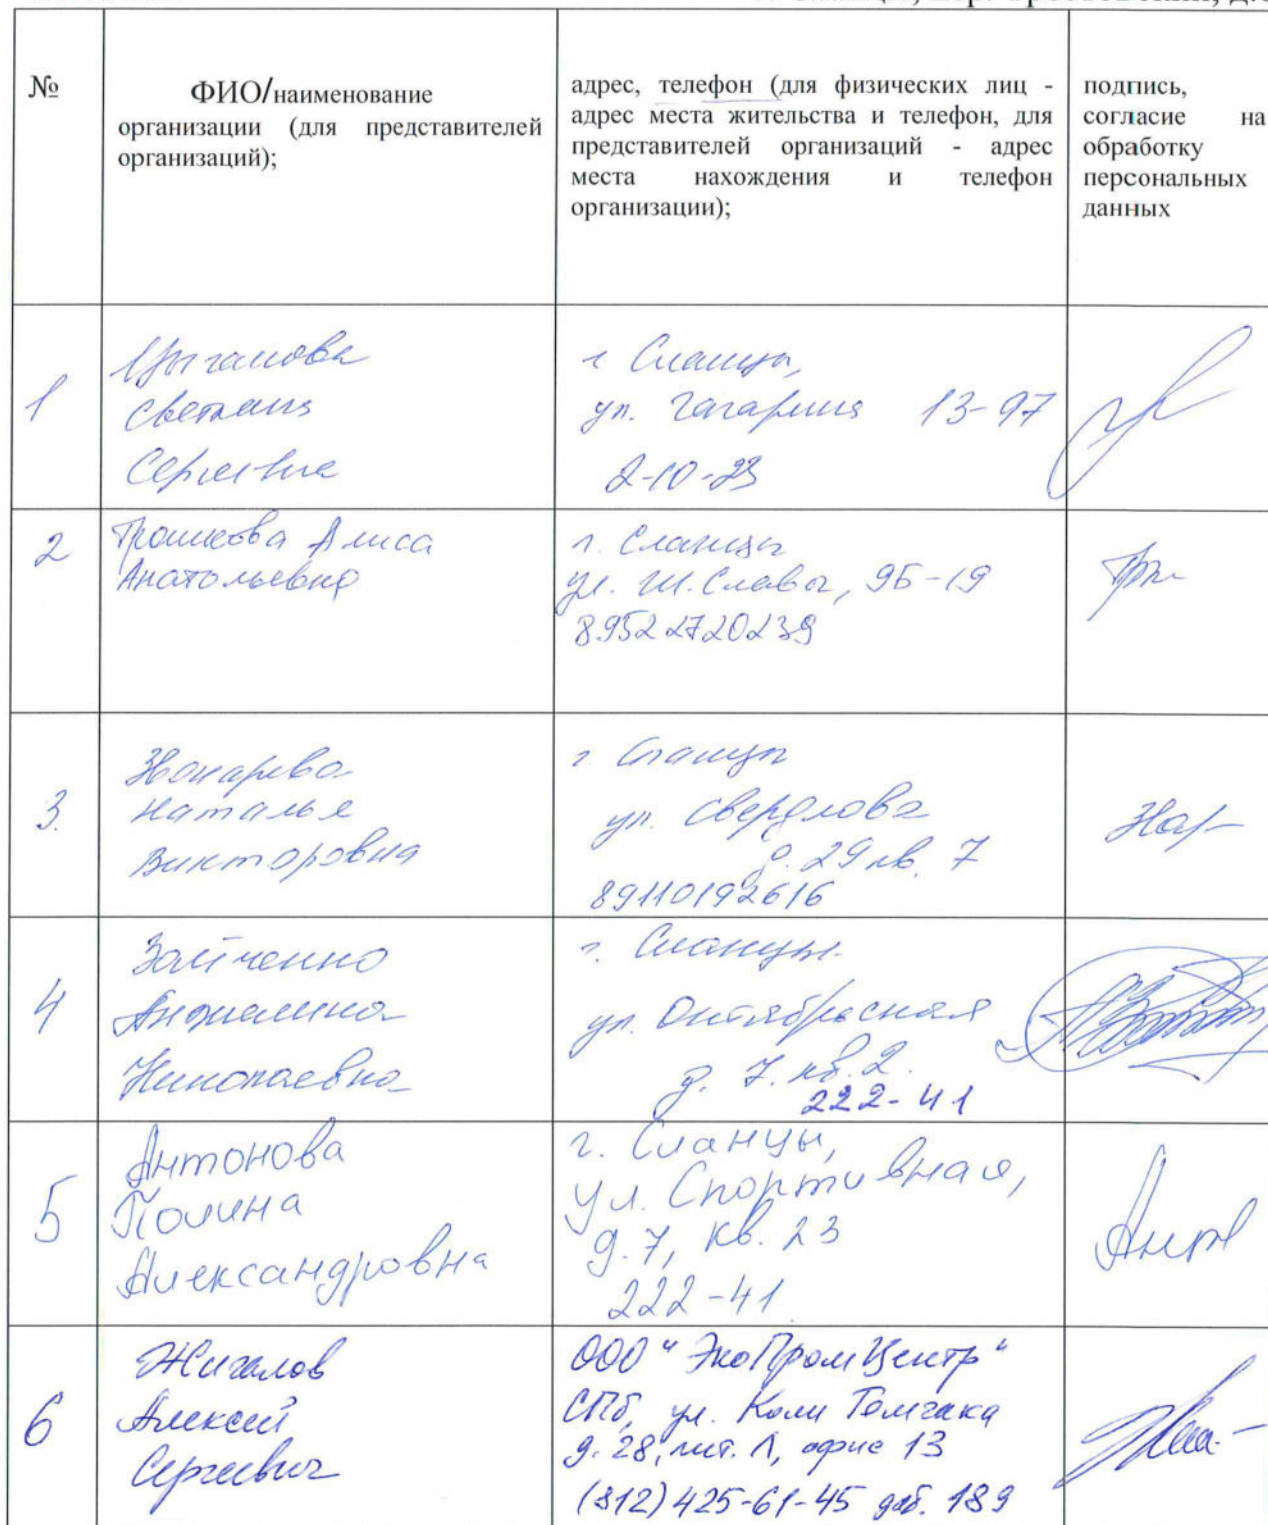 №
ФИО/наименование
организации (для представителей
организаций);
адрес, телефон (для физических лиц -
адрес места жительства и телефон, для
представителей организаций - адрес
места нахождения и телефон
организации);
подпись,
согласие на
обработку
персональных
данных
1
Цыганова
Светлана
Сергеевна
г Сланцы,
ул. Гагарина 13-97
2-10-23
2
Трошкова Алиса
Анатольевна
г. Сланцы
ул. Ш. Славы, 9Б-19
89522720239
3.
Звонарева
Наталья
Викторовна
г. Сланцы
ул. Свердлова
д. 29 кв. 7
89110192616
4
Зайченко
Анжелина
Николаевна
г. Сланцы
ул. Октябрьская
д. 7. кв. 2.
222-41
5
Антонова
Полина
Александровна
г. Сланцы,
ул. Спортивная,
д. 7, кв. 23
222-41
6
Жигалов
Алексей
Сергеевич
ООО "ЭкоПромЦентр"
СПб, ул. Коли Томчака
д. 28, лит. Л, офис 13
(812) 425-61-45 доб. 189